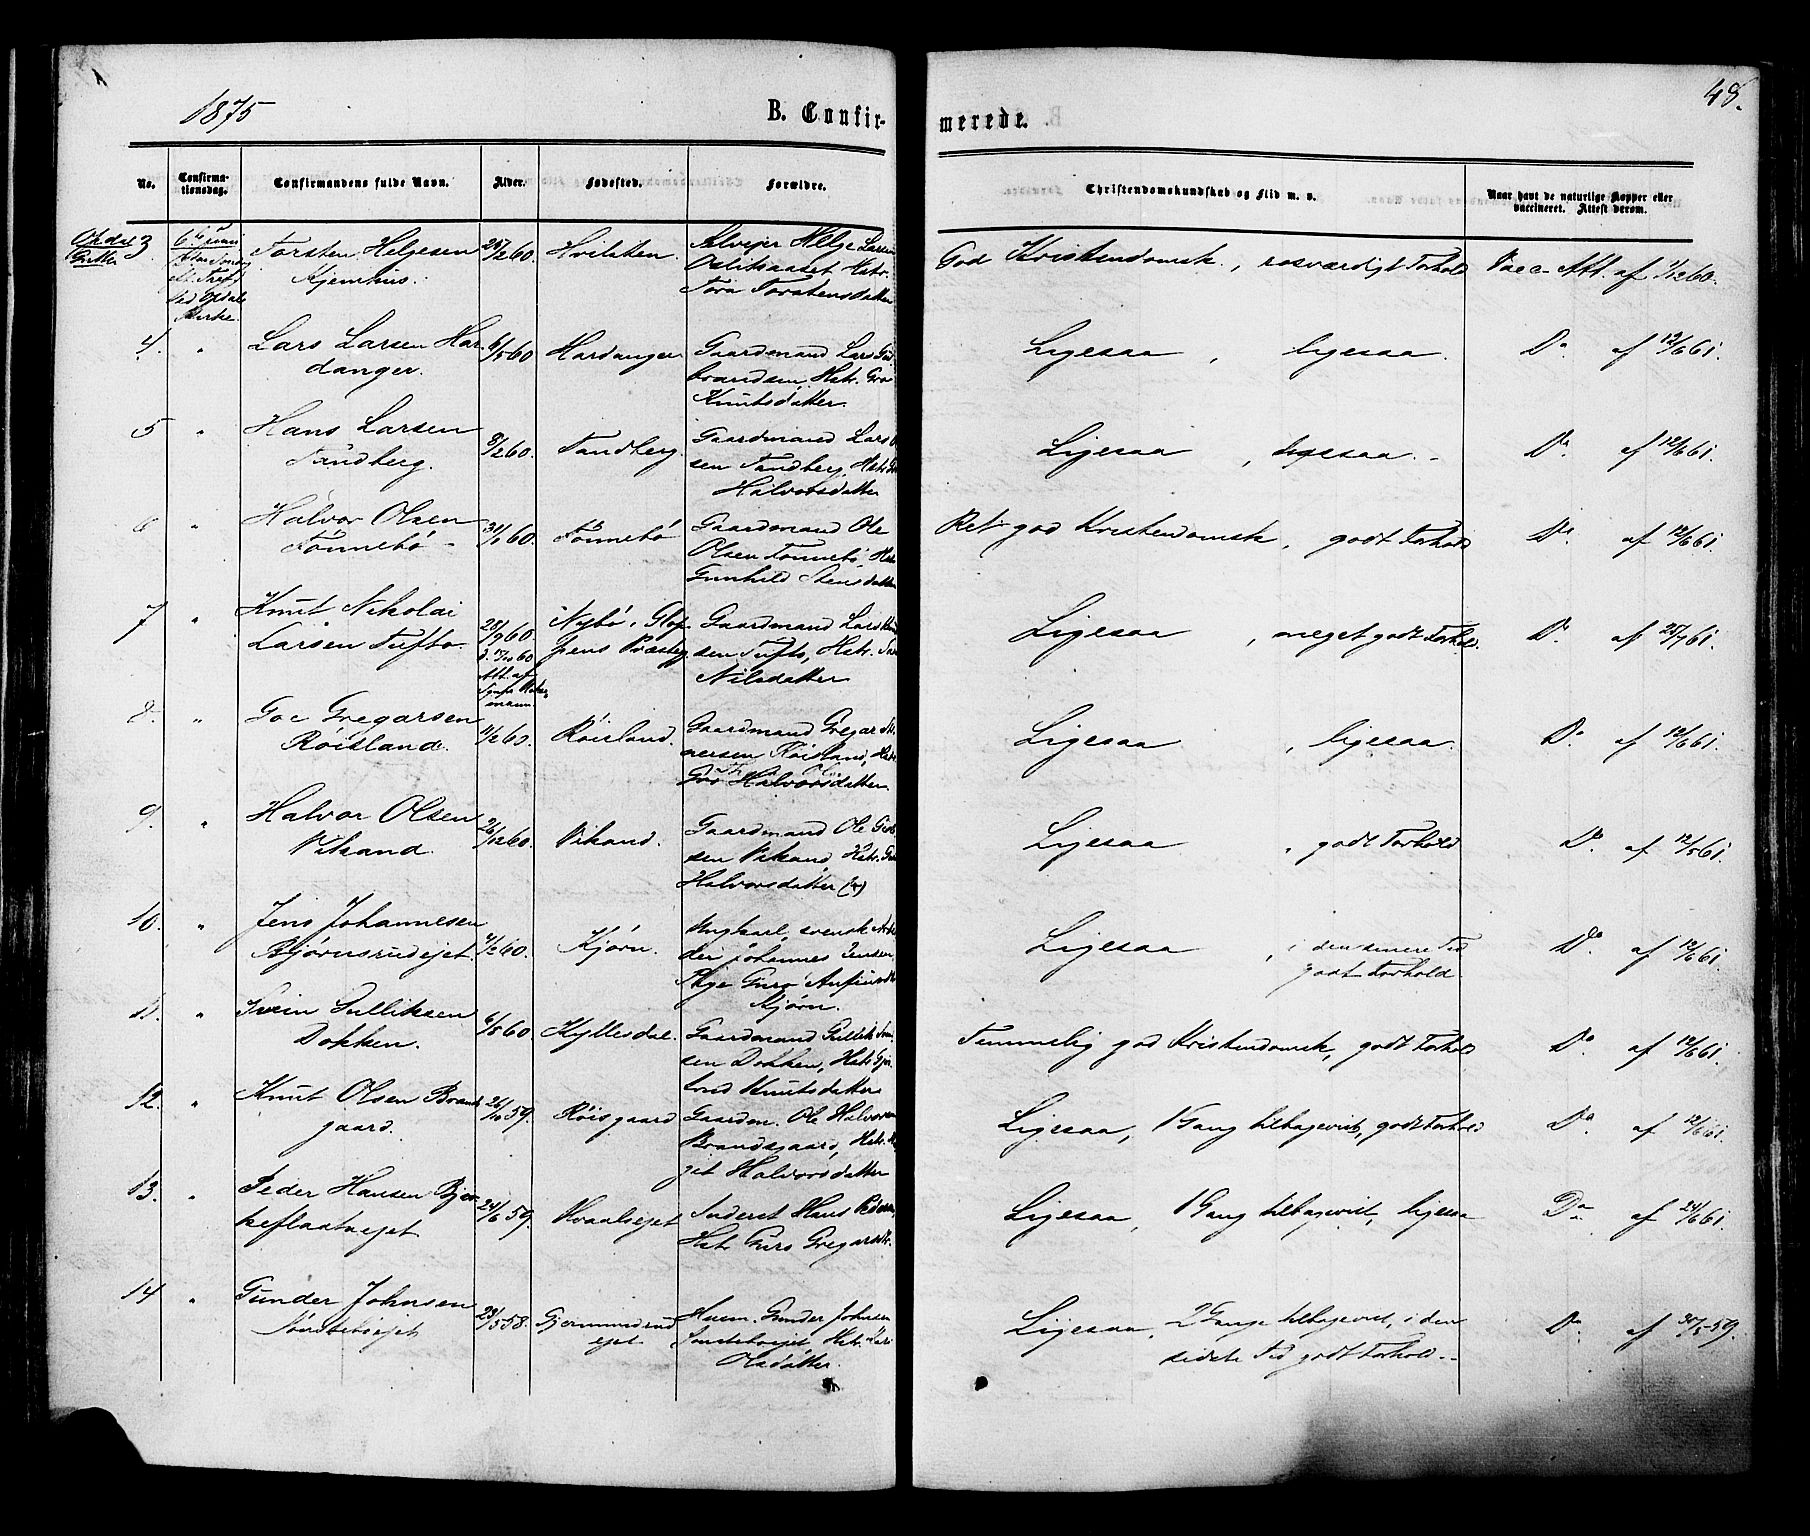 1875
B. Confir-
merede.
48.
No.
Confirma-
tionsdag.
Confirmandens fulde Navn.
Alder.
Fødested.
Forældre.
Christendomskundskab og Flid m. v.
Naar havt de naturlige Kopper eller
vaccineret. Attest derom.
Opdal
3
6te Juni
Torsten Helgesen
Kjemhus.
28/2 60.
Selveier Helge Larsen
Tora Torstensdatter
God Kristendomsk., rosværdigt Forhold
Vacc. Att. af
Opdal
Kirke.
4. " Lars Larsen Har
danger.
6/5 60
Hardanger
Gaardmand Lars Gul
brandsen, Hstr. Gro
Knutsdatter.
Ligesaa, ligesaa.
Do. af 12/6 61.
5 " Hans Larsen
Tandberg.
3/2 60.
Tandberg.
Gaardmand Lars
sen Tandberg, Hstr.
Halvorsdatter
Ligesaa, ligesaa.
Do. af 12/6 61.
6 " Halvor Olsen
Tonnebø
31/1 60.
Tonnebø
Gaardmand Ole
Olsen Tonnebø, Hstr.
Gunhild Stensdatter
Ret god Kristendomsk, godt Forhold
Do. af 12/6 61.
7 " Knut Nikolai
Larsen Tufto.
28/9 60.
Att. af
Nybø i
Præsteg
Gaardmand Lars
sen Tufto, Hstr.
Nilsdatter
Ligesaa, meget godt Forhold.
Do. af 25/7 61.
8. " Goe Gregarsen
Røisland.
11/2 60.
Røisland.
Gaardmand Gregar
Røisland, Hstr.
Gro Halvorsdatter.
Ligesaa, ligesaa.
Do. af 12/6 61.
9. " Halvor Olsen
Vikand.
26/12 60.
Vikand.
Gaardmand Ole
sen Vikand, Hstr.
Halvorsdatter
Ligesaa, godt Forhold
Do. af 12/5 61.
10. " Jens Johannesen
Bjørnsrudejet.
4/2 60.
Kjørn.
Ungkarl, svensk Ar
der Johannes Jensen
Pige Guro
Kjørn.
Ligesaa, i den senere Tid
godt Forhold
Do. af 12/6 61.
11. " Svein Gulliksen
Dokken.
6/5 60
Hyllesdal.
Gaardmand Gullik
sen Dokken, Hstr.
Knutsdatter
Temmelig god Kristendomsk, godt Forhold
Do. af 12/6 61.
12. " Knut Olsen Brands
gaard.
26/10 59.
Røisgaard
Gaardm. Ole Halvorsen
Brandsgaard, Hstr.
Halvorsdatter
Ligesaa, 1 Gang tilbagevist, godt Forhold
Do. af 12/6 61.
13. " Peder Hansen Bjer
keflaatrejet.
24/6 59.
Kvaalsejet
Inderst Hans Pedersen,
Hstr. Guro Gregarsdtr.
Ligesaa, 1 Gang tilbagevist, ligesaa
Do. af 24/6 61.
14 " Gunder Johnsen
23/5 58.
Gjermundrud
ejet
Husm. Gunder Johnsen
Hstr.
Olsdatter.
Ligesaa, 2 Gange tilbagevist, i den
sidste Tid godt Forhold.
Do. af 30/5 59.